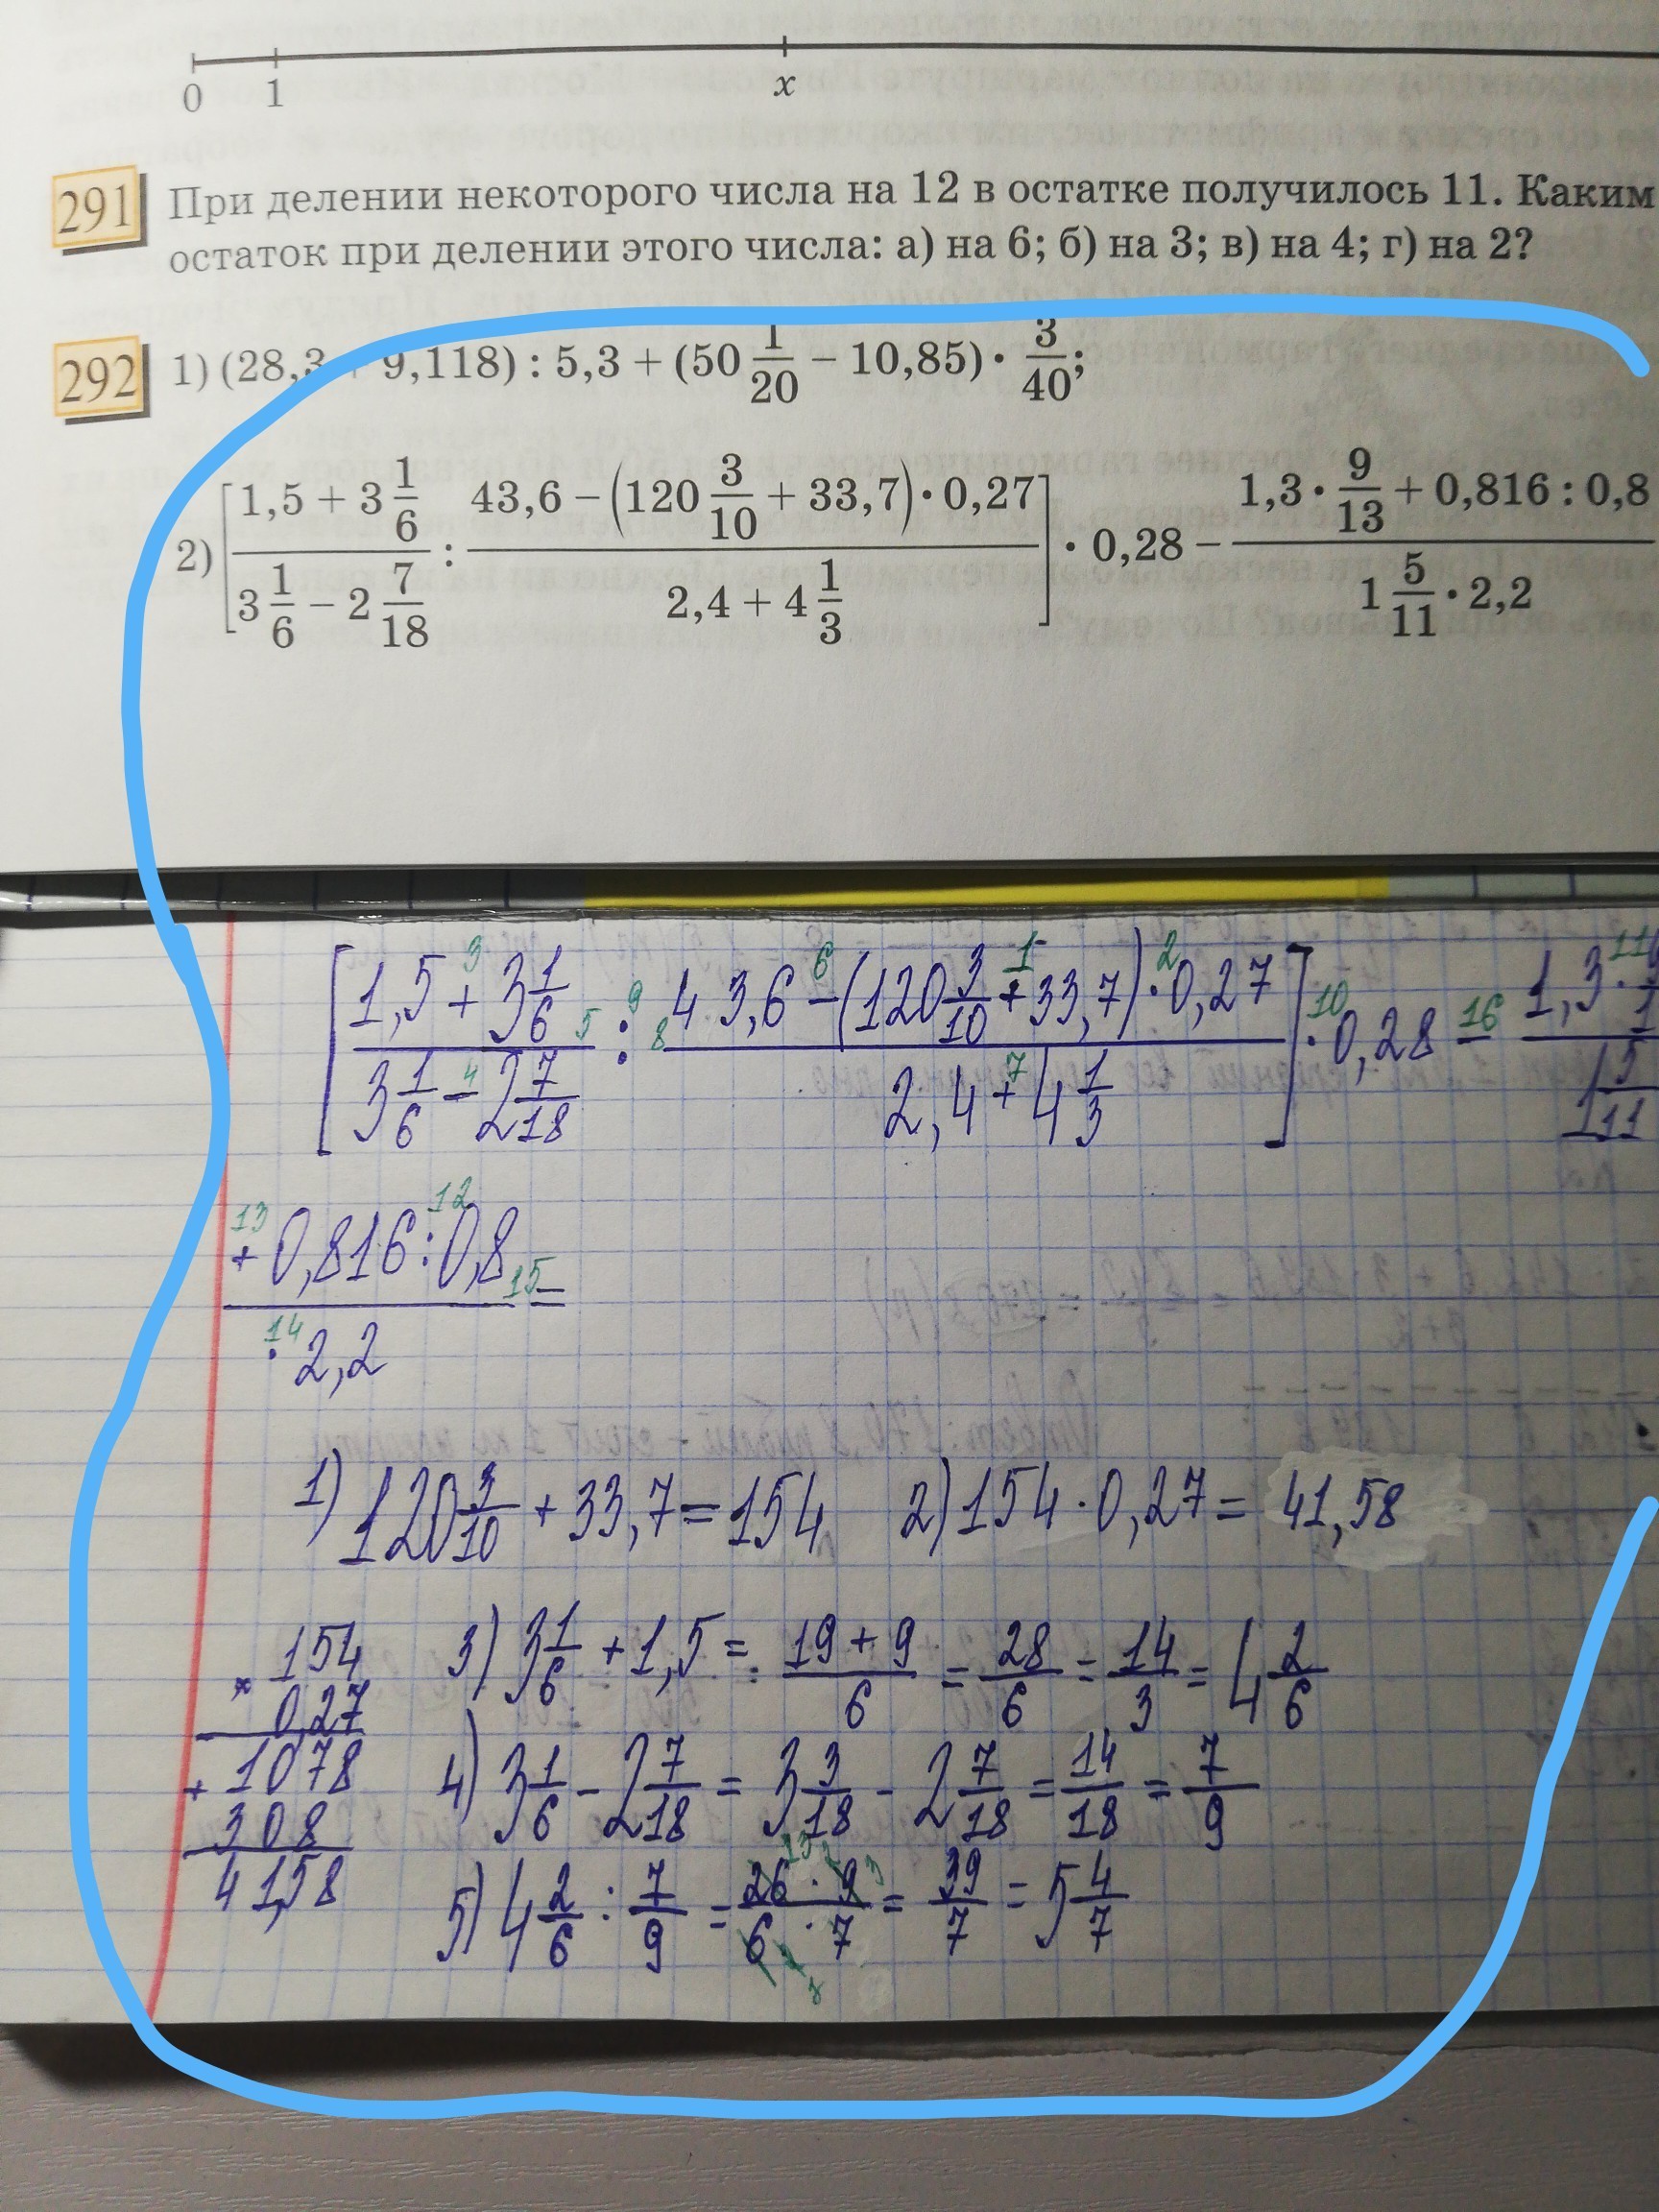 0 1 x
291 При делении некоторого числа на 12 в остатке получилось 11. Каким
остаток при делении этого числа: а) на 6; б) на 3; в) на 4; г) на 2?
292 1) (28,3 + 9,118) : 5,3 + (50 1/20 − 10,85) · 3/40;
2) [(1,5 + 3 1/6)/(3 1/6 − 2 7/18) : (43,6 − (120 3/10 + 33,7) · 0,27)/(2,4 + 4 1/3)] · 0,28 − (1,3 · 9/13 + 0,816 : 0,8)/(1 5/11 · 2,2)
3 9 6 1 2 10 16 11
[(1,5 + 3 1/6)/(3 1/6 − 2 7/18) : (43,6 − (120 3/10 + 33,7) · 0,27)/(2,4 + 4 1/3)] · 0,28 − 1,3 ·
5 8 4 7 1 5/11
13 12
+ 0,816 : 0,8 15 =
14
· 2,2
1) 120 3/10 + 33,7 = 154 2) 154 · 0,27 = 41,58
154
× 0,27
+ 1078
308
41,58
3) 3 1/6 + 1,5 = (19 + 9)/6 = 28/6 = 14/3 = 4 2/6
4) 3 1/6 − 2 7/18 = 3 3/18 − 2 7/18 = 14/18 = 7/9
5) 4 2/6 : 7/9 = (26 · 9)/(6 · 7) = 39/7 = 5 4/7